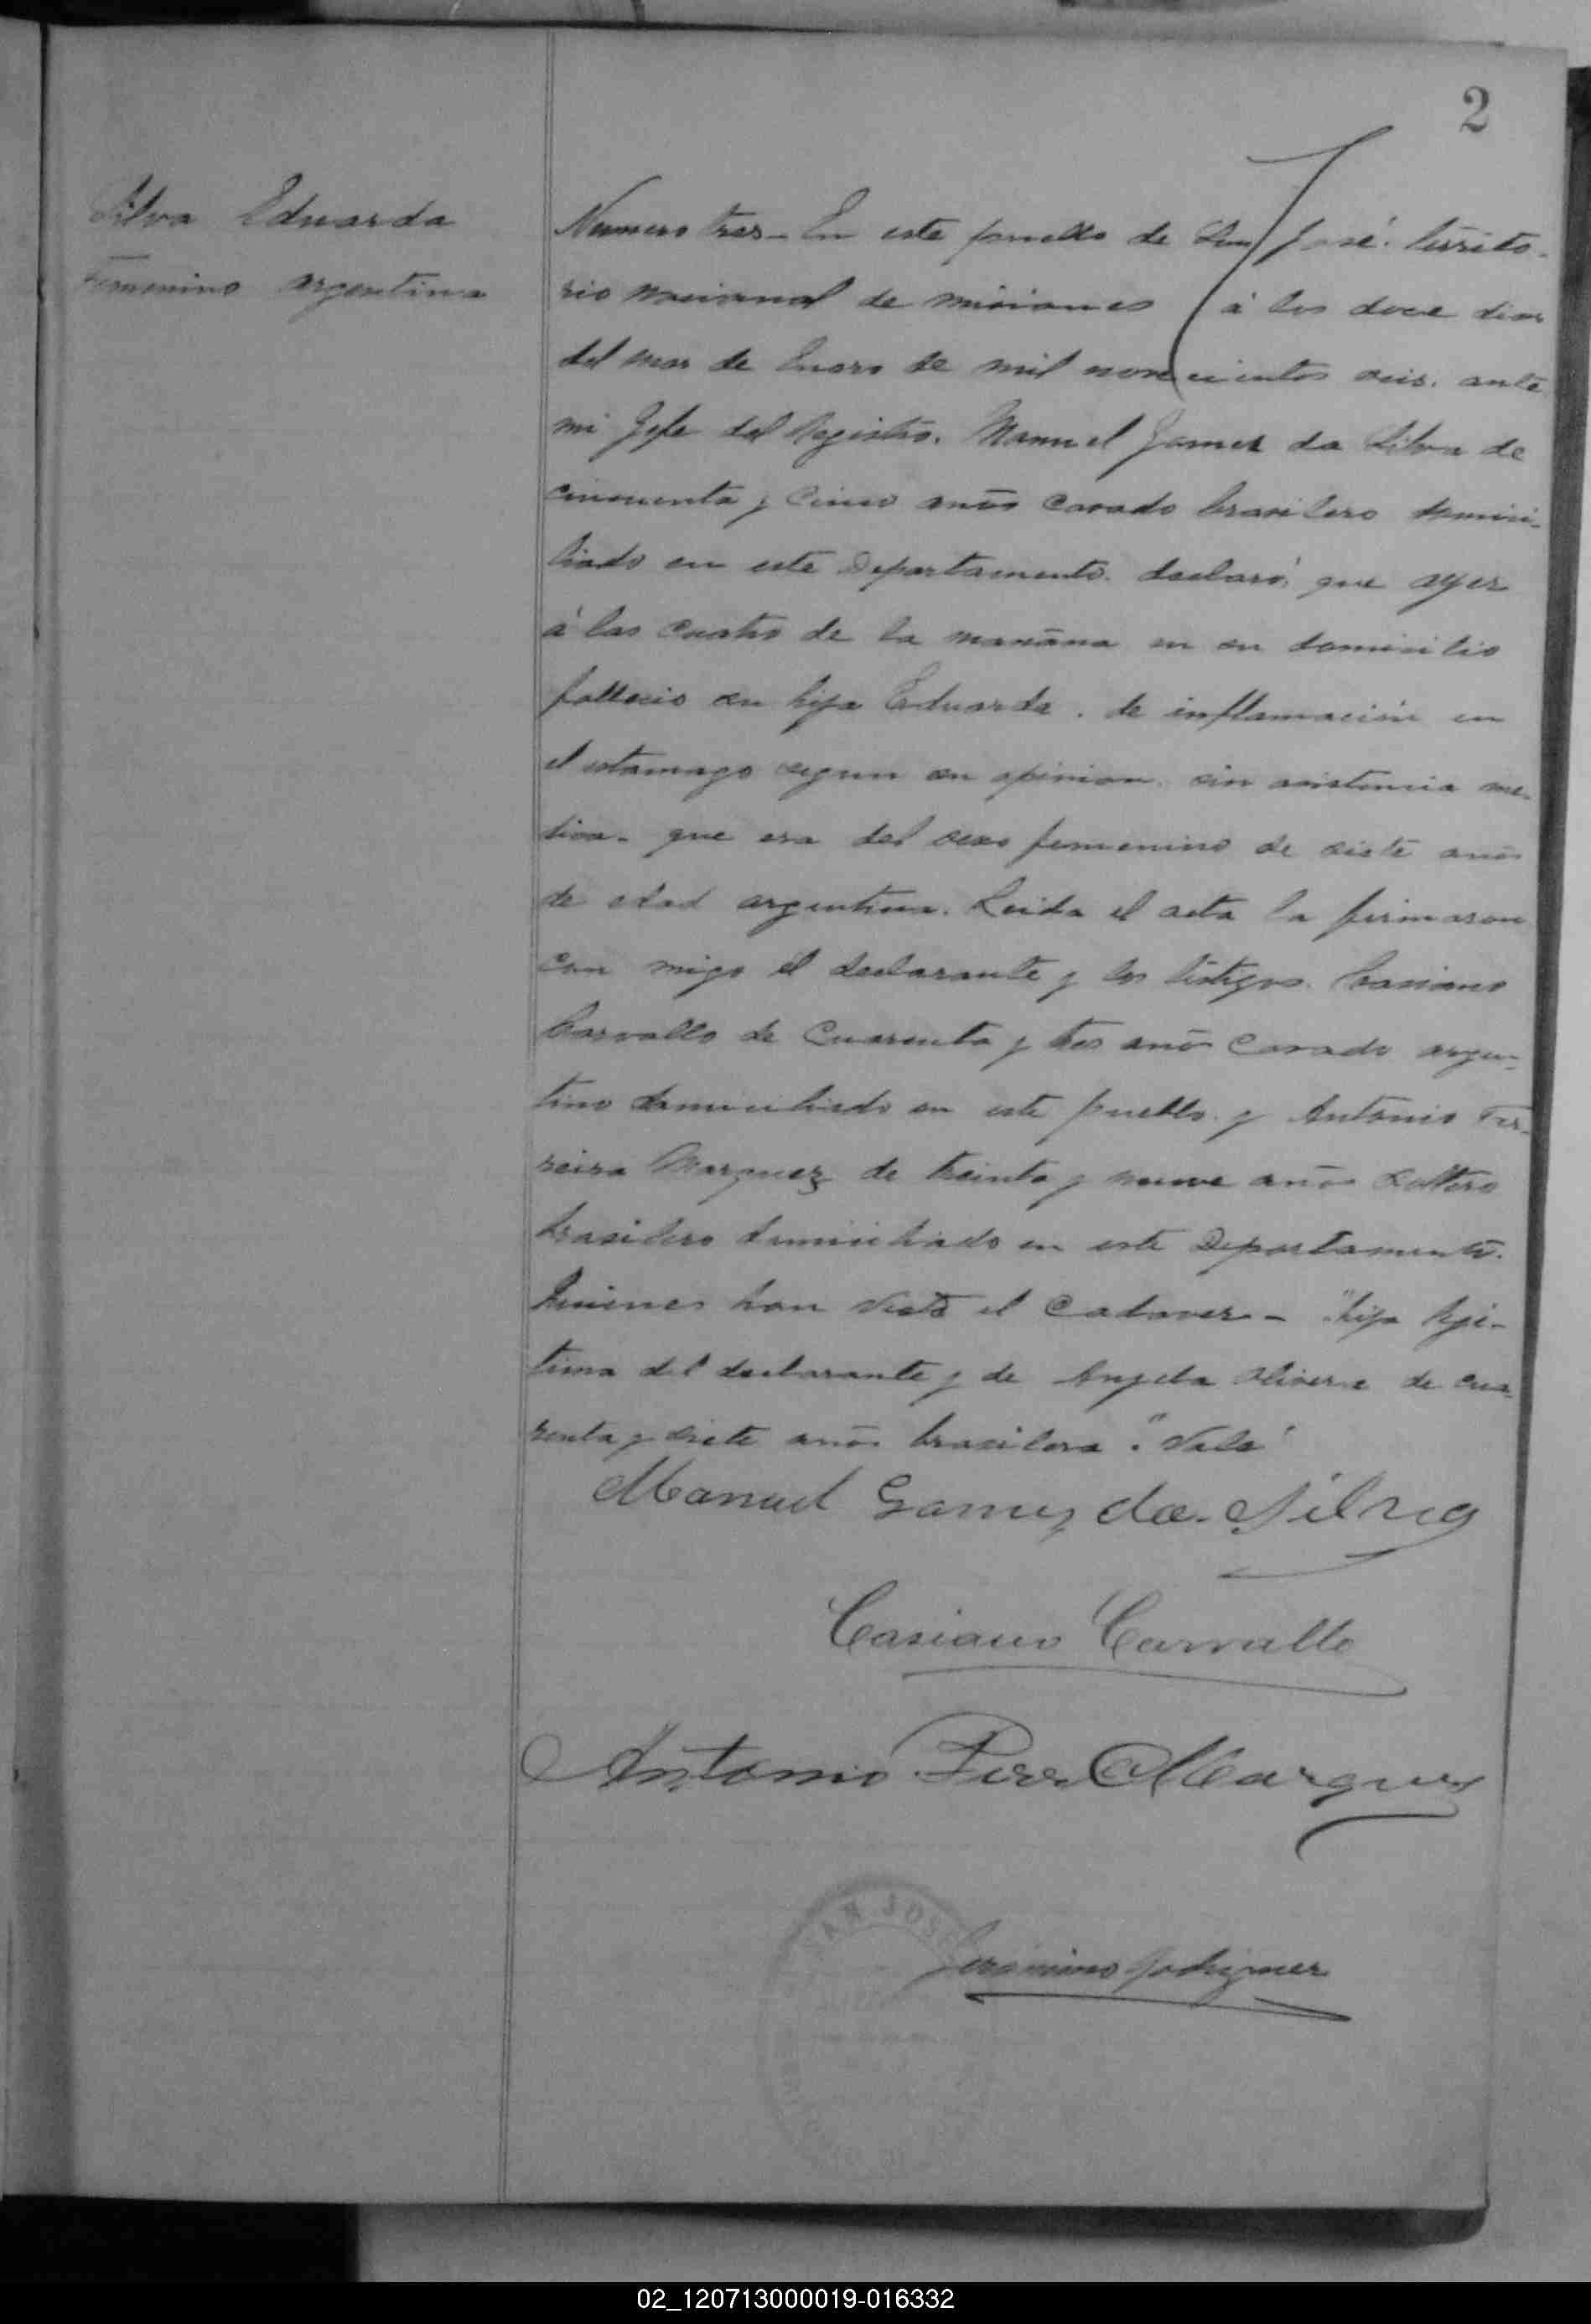 2
Silva Eduarda
Femenino argentina
Numero tres – En este pueblo de San José. territo-
rio nacional de misiones á los doce dias
del mes de Enero de mil novecientos seis. ante
mi Jefe del Registro. Manuel Gomez da Silva de
cincuenta y cinco años casado brasilero domici-
liado en este Departamento. declaró: que ayer
á las cuatro de la mañana en su domicilio
fallecio su hija Eduarda. de inflamación en
el estomago segun su opinion. sin asistencia me-
dica – que era del sexo femenino de siete años
de edad argentina. Leida el acta la firmaron
con migo el declarante y los testigos. Casiano
Carvallo de cuarenta y tres años casado argen-
tino domiciliado en este pueblo. y Antonio Fer-
reira Marquez de treinta y nueve años soltero
brasilero domiciliado en este Departamento.
Quienes han visto el cadaver – "hija legi-
tima del declarante y de Angela Olivera de cua-
renta y siete años brasilera". Vale
Manuel Gomez da Silva
Casiano Carvallo
Antonio Ferr Marques
Geronimo Rodriguez
SAN JOSE
02_120713000019-016332